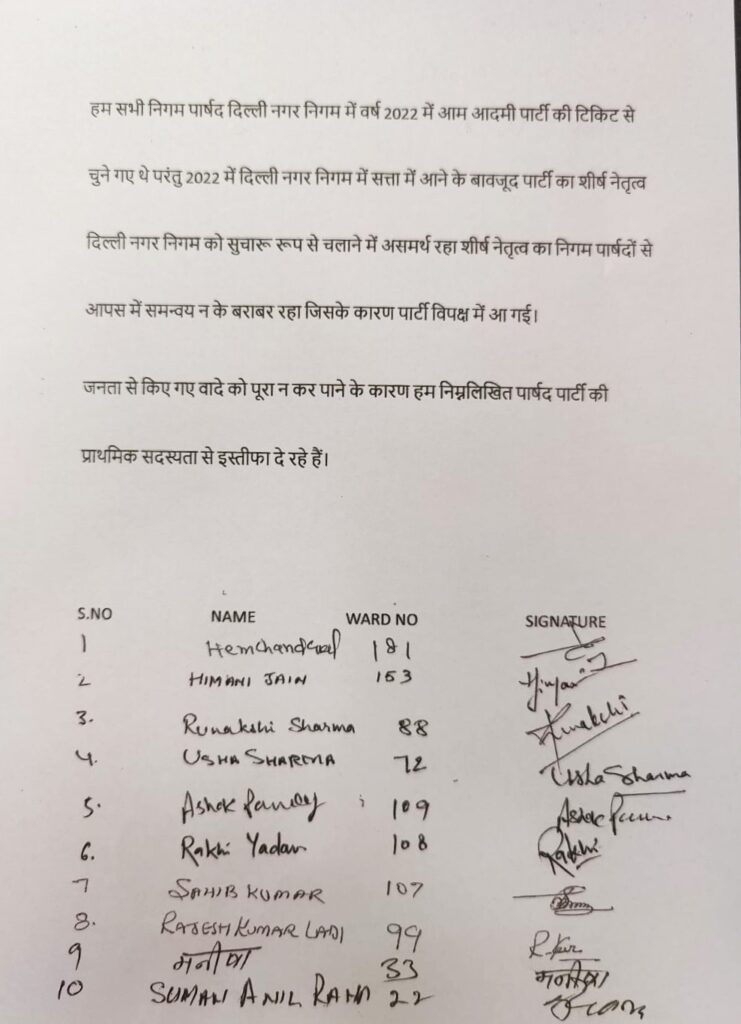 हम सभी निगम पार्षद दिल्ली नगर निगम में वर्ष 2022 में आम आदमी पार्टी की टिकिट से
चुने गए थे परंतु 2022 में दिल्ली नगर निगम में सत्ता में आने के बावजूद पार्टी का शीर्ष नेतृत्व
दिल्ली नगर निगम को सुचारू रूप से चलाने में असमर्थ रहा शीर्ष नेतृत्व का निगम पार्षदों से
आपस में समन्वय न के बराबर रहा जिसके कारण पार्टी विपक्ष में आ गई।
जनता से किए गए वादे को पूरा न कर पाने के कारण हम निम्नलिखित पार्षद पार्टी की
प्राथमिक सदस्यता से इस्तीफा दे रहे हैं।
S.NO NAME WARD NO SIGNATURE
1 181
2 HIMANI JAIN 153
3. Runakshi Sharma 88 Runakshi
4. USHA SHARMA 72 Usha Sharma
5. Ashok Pandey 109 Ashok
6. Rakhi Yadav 108 Rakhi
7 SAHIB KUMAR 107
8. RAJESH KUMAR LADI 99
9 मनीषा 33 मनीषा
10 SUMAN ANIL RANA 22